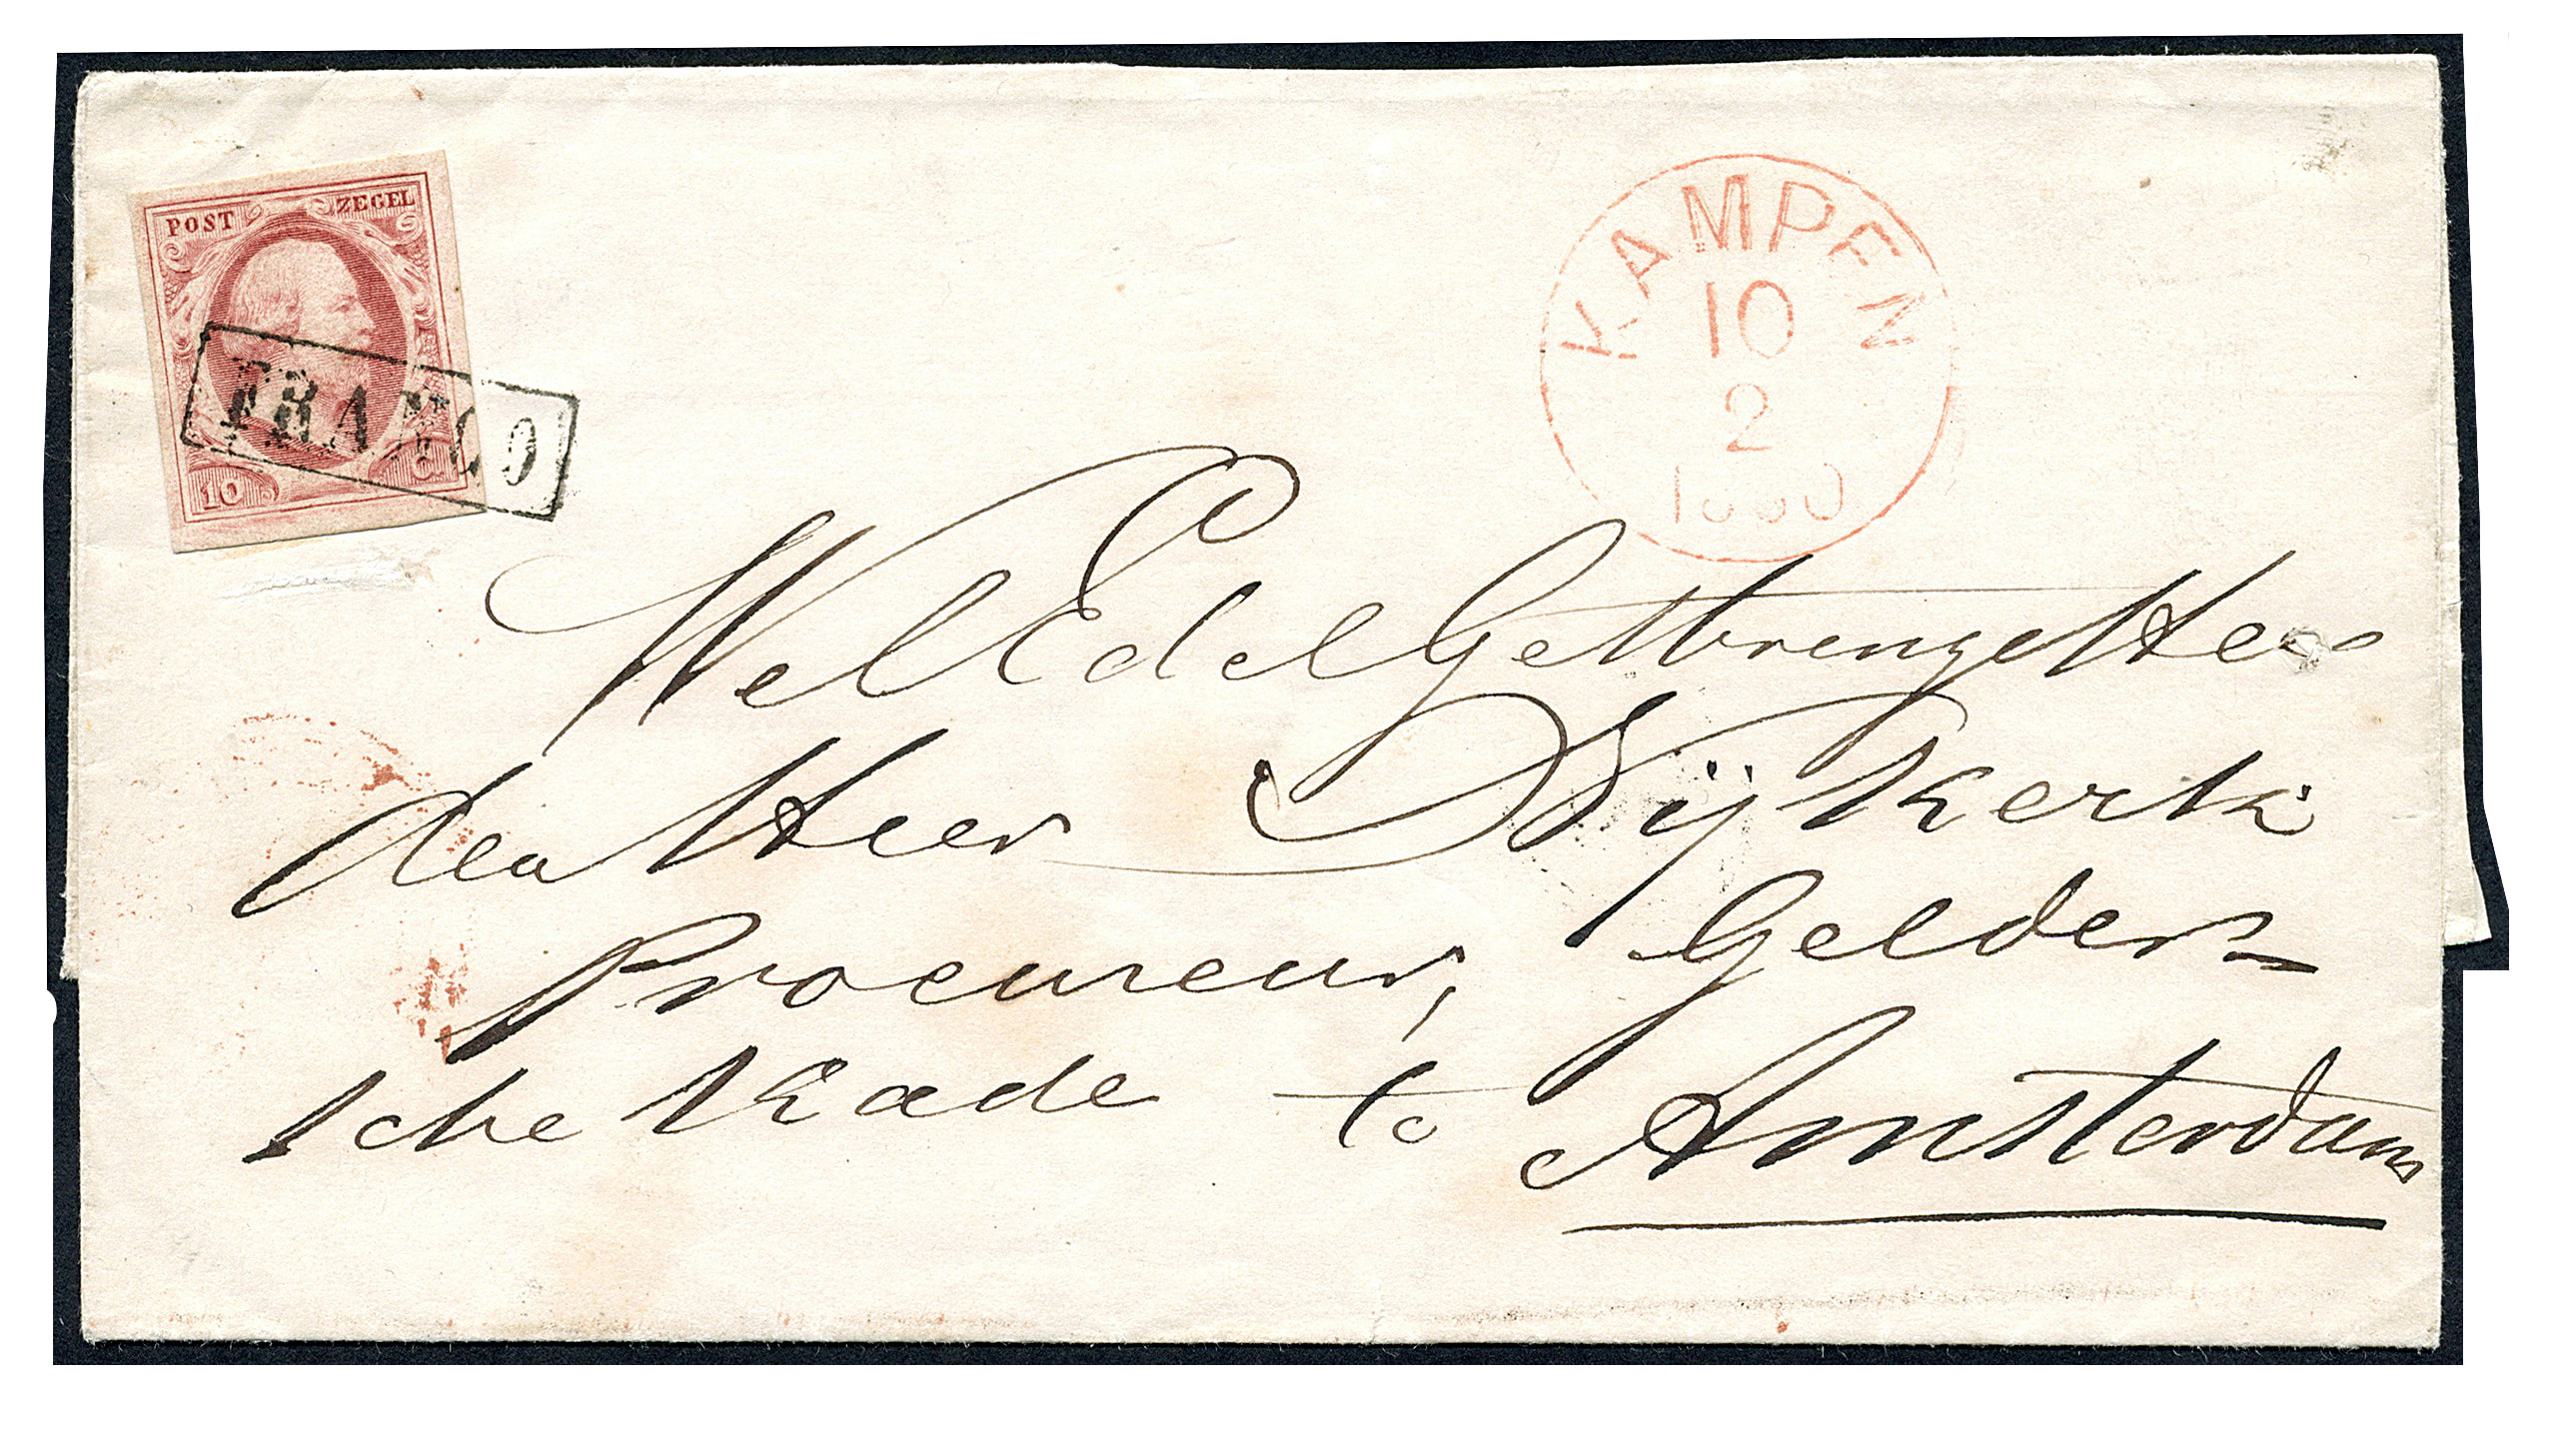 POST ZEGEL
10 C.
FRANCO
KAMPEN
10
2
WelEdelGestrenge Heer
den Heer Nijkerk
Procureur, Gelder=
sche Kade te
Amsterdam